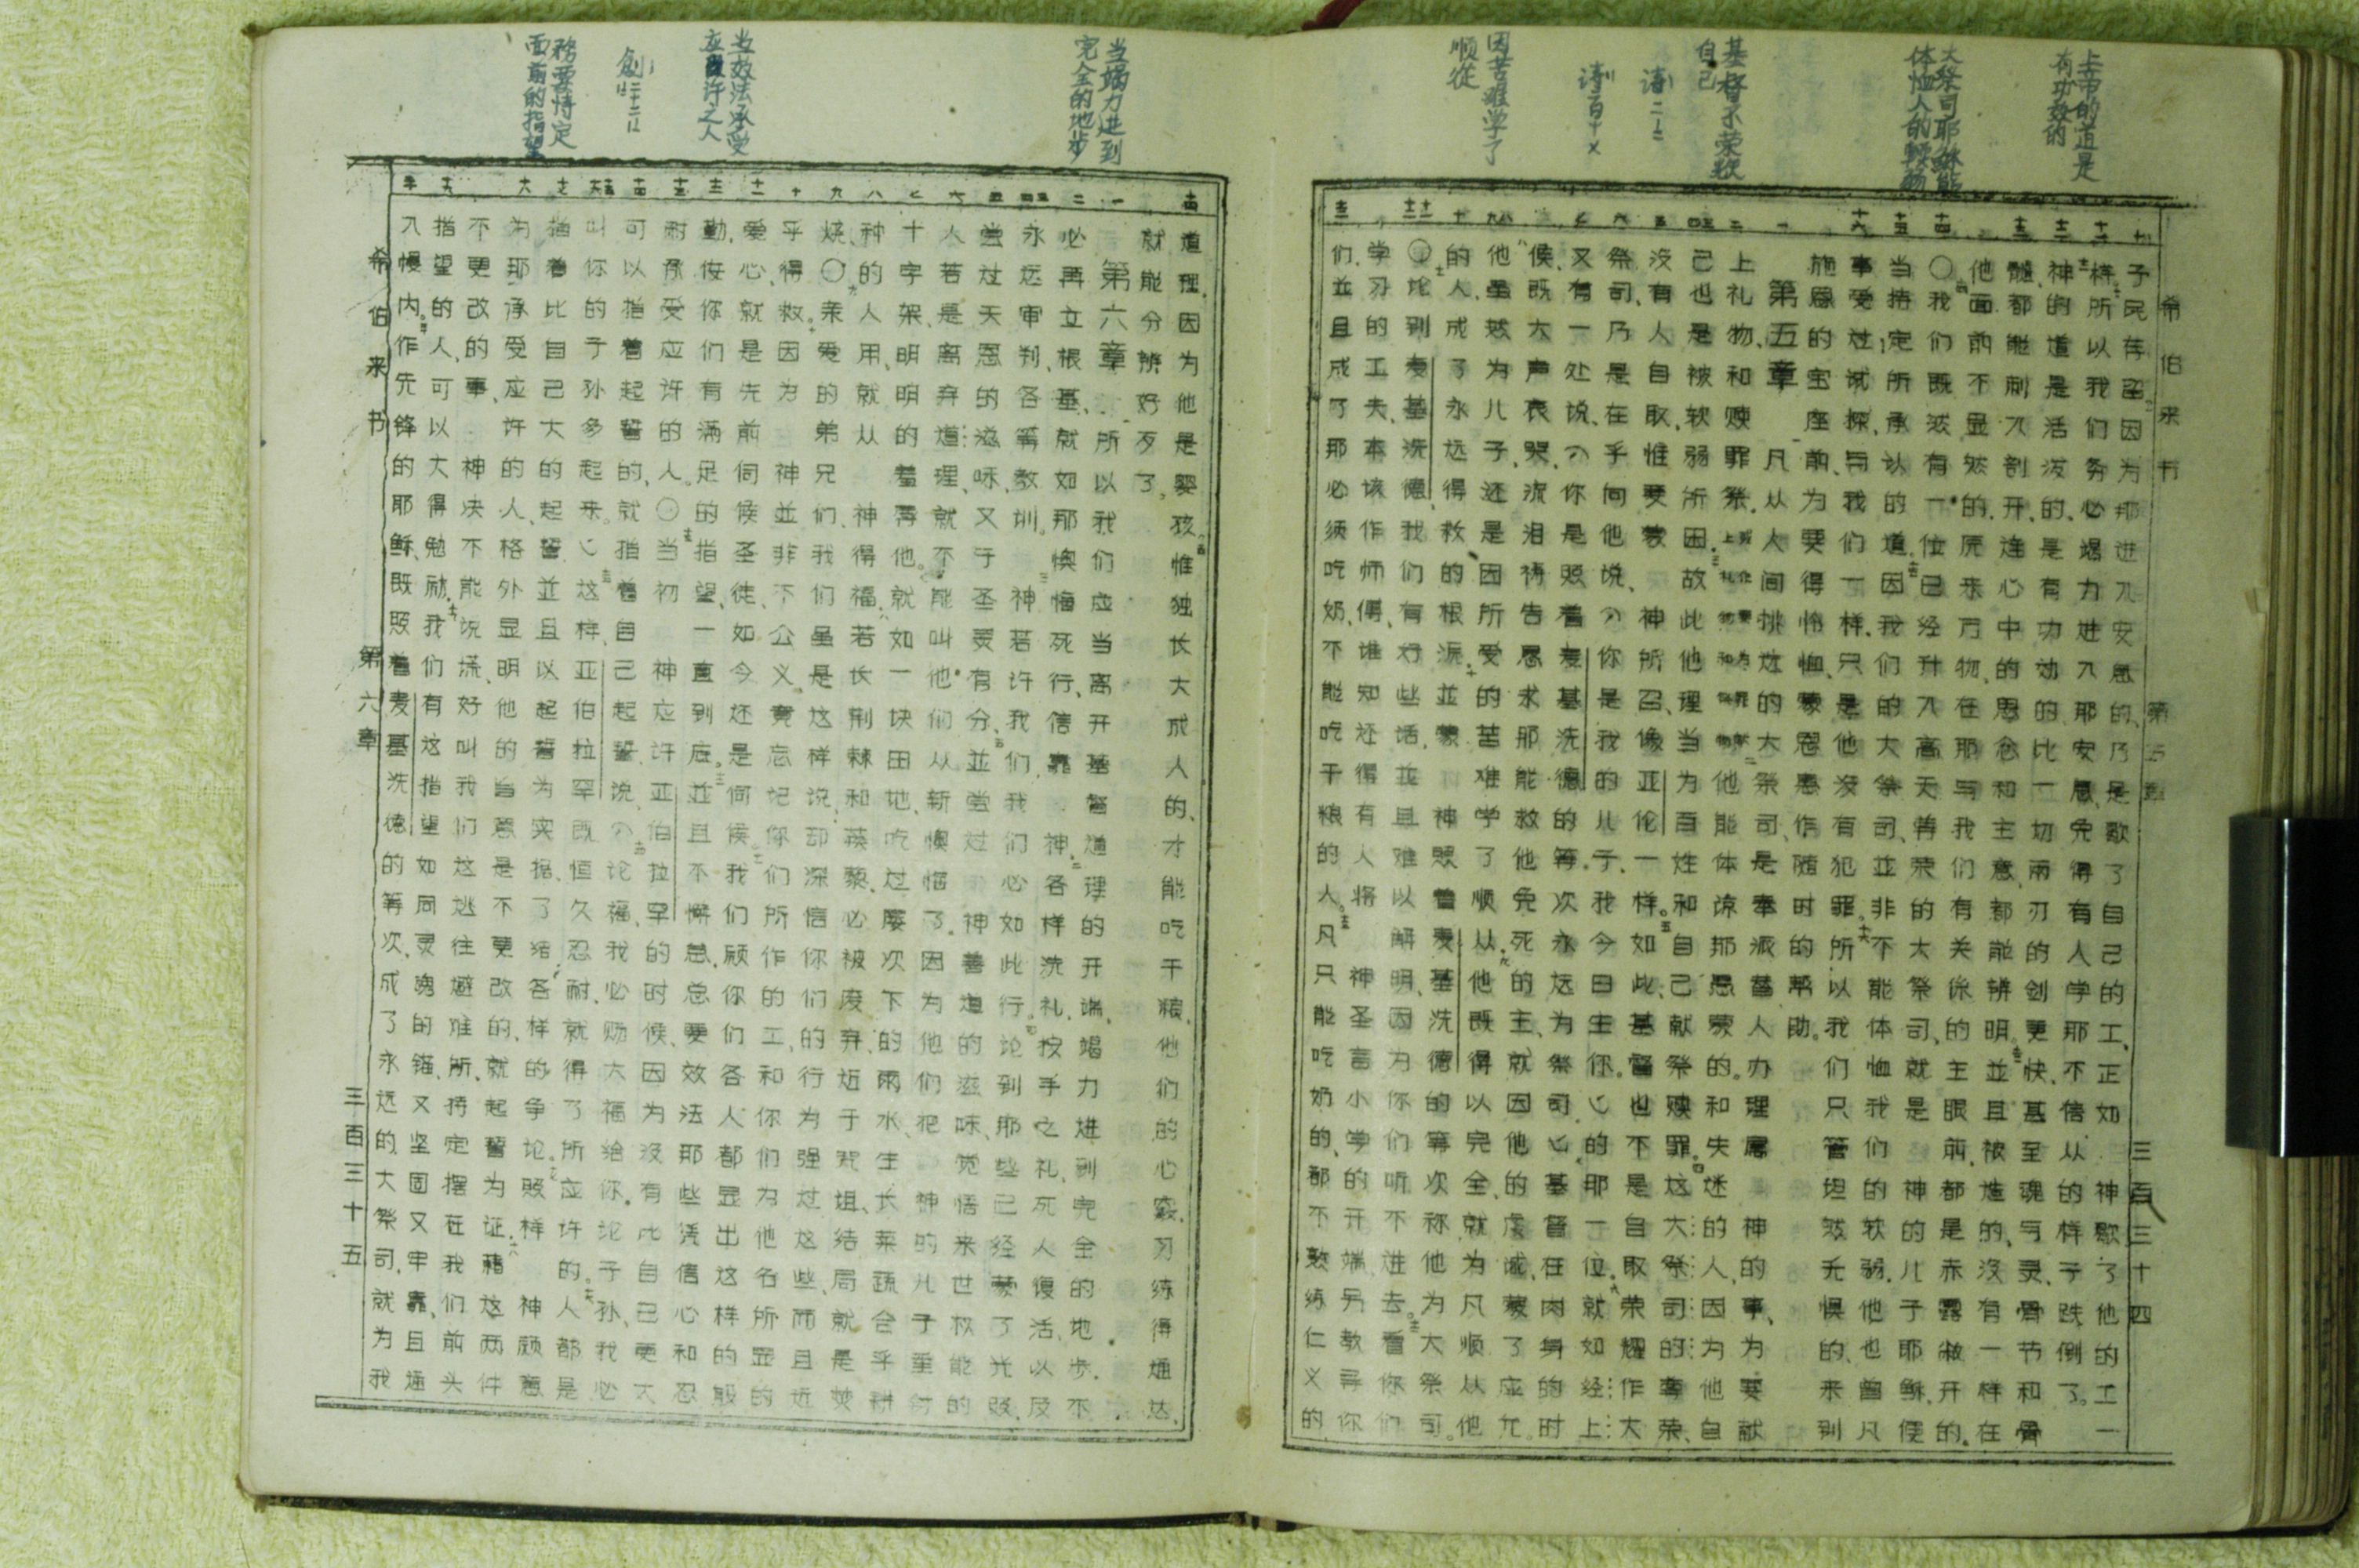 上帝的道是
有功效的
大祭司耶稣能
体恤人的软弱
基督不荣耀
自己
因苦难学了
顺從
希伯来书 第五章 三百三十四
子民存留。因为那进入安息的、乃是歇了自己的工、正如 神歇了他的工一
样。所以我们务必竭力进入那安息、免得有人学那不信从的样子跌倒了。
神的道是活泼的、是有功效的、比一切两刃的剑更快、甚至魂与灵、骨节和骨
髓、都能刺入剖开、连心中的思念和主意、都能辨明。並且被造的、没有一样在
他面前不显然的、原来万物、在那与我们有关系的主眼前、都是赤露敞开的。
○我们既然有一位已经升入高天尊荣的大祭司、就是 神的儿子耶稣、便
当持定所承认的道。因我们的大祭司、並非不能体恤我们的软弱、他也曾凡
事受过试探、与我们一样、只是他没有犯罪。所以我们只管坦然无惧的、来到
施恩的宝座前、为要得怜恤、蒙恩惠、作随时的帮助。
第五章 凡从人间挑选的大祭司、是奉派替人办理属 神的事、为要献
上礼物、和赎罪祭。他能体谅那愚蒙的、和失迷的人、因为他自
己也是被软弱所困。故此他理当为百姓和自己献祭赎罪。这大祭司的尊荣、
没有人自取、惟要蒙 神所召、像亚伦一样。如此、基督也不是自取荣耀作大
祭司、乃是在乎向他说、你是我的儿子、我今日生你。的那一位。就如经上
又有一处说、你是照着麦基洗德的等次永远为祭司。基督在肉身的时
候、既大声哀哭、流泪祷告恳求那能救他免死的主、就因他的虔诚、蒙了应允。
他虽然为儿子、还是因所受的苦难学了顺从、他既得以完全、就为凡顺从他
的人、成了永远得救的根源、並蒙 神照着麦基洗德的等次称他为大祭司。
○论到麦基洗德、我们有好些话、並且难以解明、因为你们听不进去。看你们
学习的工夫、本该作师傅、谁知还得有人将 神圣言小学的开端另教导你
们、並且成了那必须吃奶不能吃干粮的人。凡只能吃奶的、都不熟练仁义的
当竭力进到
完全的地步
当效法承受
应许之人
務要持定
面前的指望
道理、因为他是婴孩。惟独长大成人的、才能吃干粮、他们的心窍、习练得通达、
就能分辨好歹了。
第六章 所以我们应当离开基督道理的开端、竭力进到完全的地步。不
必再立根基、就如那懊悔死行、信靠 神、各样洗礼、按手之礼、死人复活、以及
永远审判、各等教训。 神若许我们、我们必如此行。论到那些已经蒙了光照、
尝过天恩的滋味、又于圣灵有分、並尝过 神善道的滋味、觉悟来世权能的
人、若是离弃道理、就不能叫他们从新懊悔了。因为他们犯 神的儿子重钉
十字架、明明的羞辱他。就如一块田地、吃过屡次下的雨水、生长菜蔬合乎耕
种的人用、就从 神得福。若长荆棘和蒺藜、必被废弃、近于咒诅、结局就是焚
烧。○亲爱的弟兄们、我们虽是这样说、却深信你们的行为强过这些、而且近
乎得救、因为 神並非不公义、竟忘记你们所作的工、和你们为他名所显的
爱心、就是先前伺候圣徒、如今还是伺候。我们愿你们各人都显出这样的殷
勤、使你们有满足的指望、一直到底。並且不懈怠、总要效法那些凭信心和忍
耐承受应许的人。○当初 神应许亚伯拉罕的时候、因为没有比自己更大
可以指着起誓的、就指着自己起誓说、论福、我必赐大福给你。论子孙、我必
叫你的子孙多起来。这样、亚伯拉罕既恒久忍耐、就得了所应许的。人都是
指着比自己大的起誓、並且以起誓为实据、了结各样的争论。照样 神愿意
为那承受应许的人、格外显明他的旨意是不更改的、就起誓为证。藉这两件
不更改的事、 神决不能说谎、好叫我们这逃往避难所、持定摆在我们前头
指望的人、可以大得勉励。我们有这指望如同灵魂的锚、又坚固又牢靠、且通
入幔内。作先锋的耶稣、既照着麦基洗德的等次、成了永远的大祭司、就为我
希伯来书 第六章 三百三十五